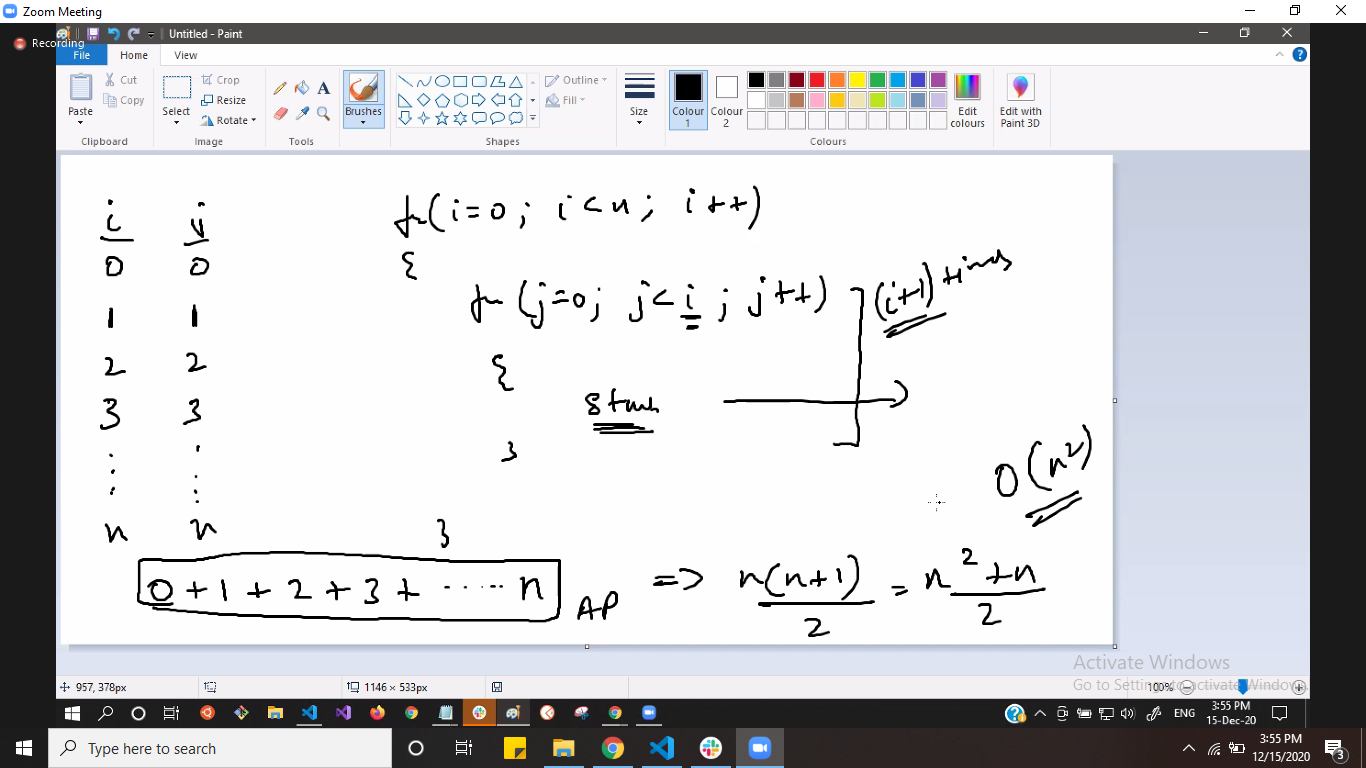 Zoom Meeting
Recording
Untitled - Paint
File Home View
Paste
Cut
Copy
Clipboard
Select
Crop
Resize
Rotate
Image
Tools
Brushes
Outline
Fill
Shapes
Size
Colour 1
Colour 2
Edit colours
Colours
Edit with Paint 3D
i j
0 0
1 1
2 2
3 3
⋮ ⋮
n n
for(i=0; i<n; i++)
{
for(j=0; j<i; j++) ] (i+1) times
{
}
}
O(n²)
0+1+2+3+ ..... n AP => n(n+1)/2 = n²+n/2
Activate Windows
Go to Settings to activate Windows.
957, 378px
1146 × 533px
100%
ENG
3:55 PM
15-Dec-20
Type here to search
3:55 PM
12/15/2020
3